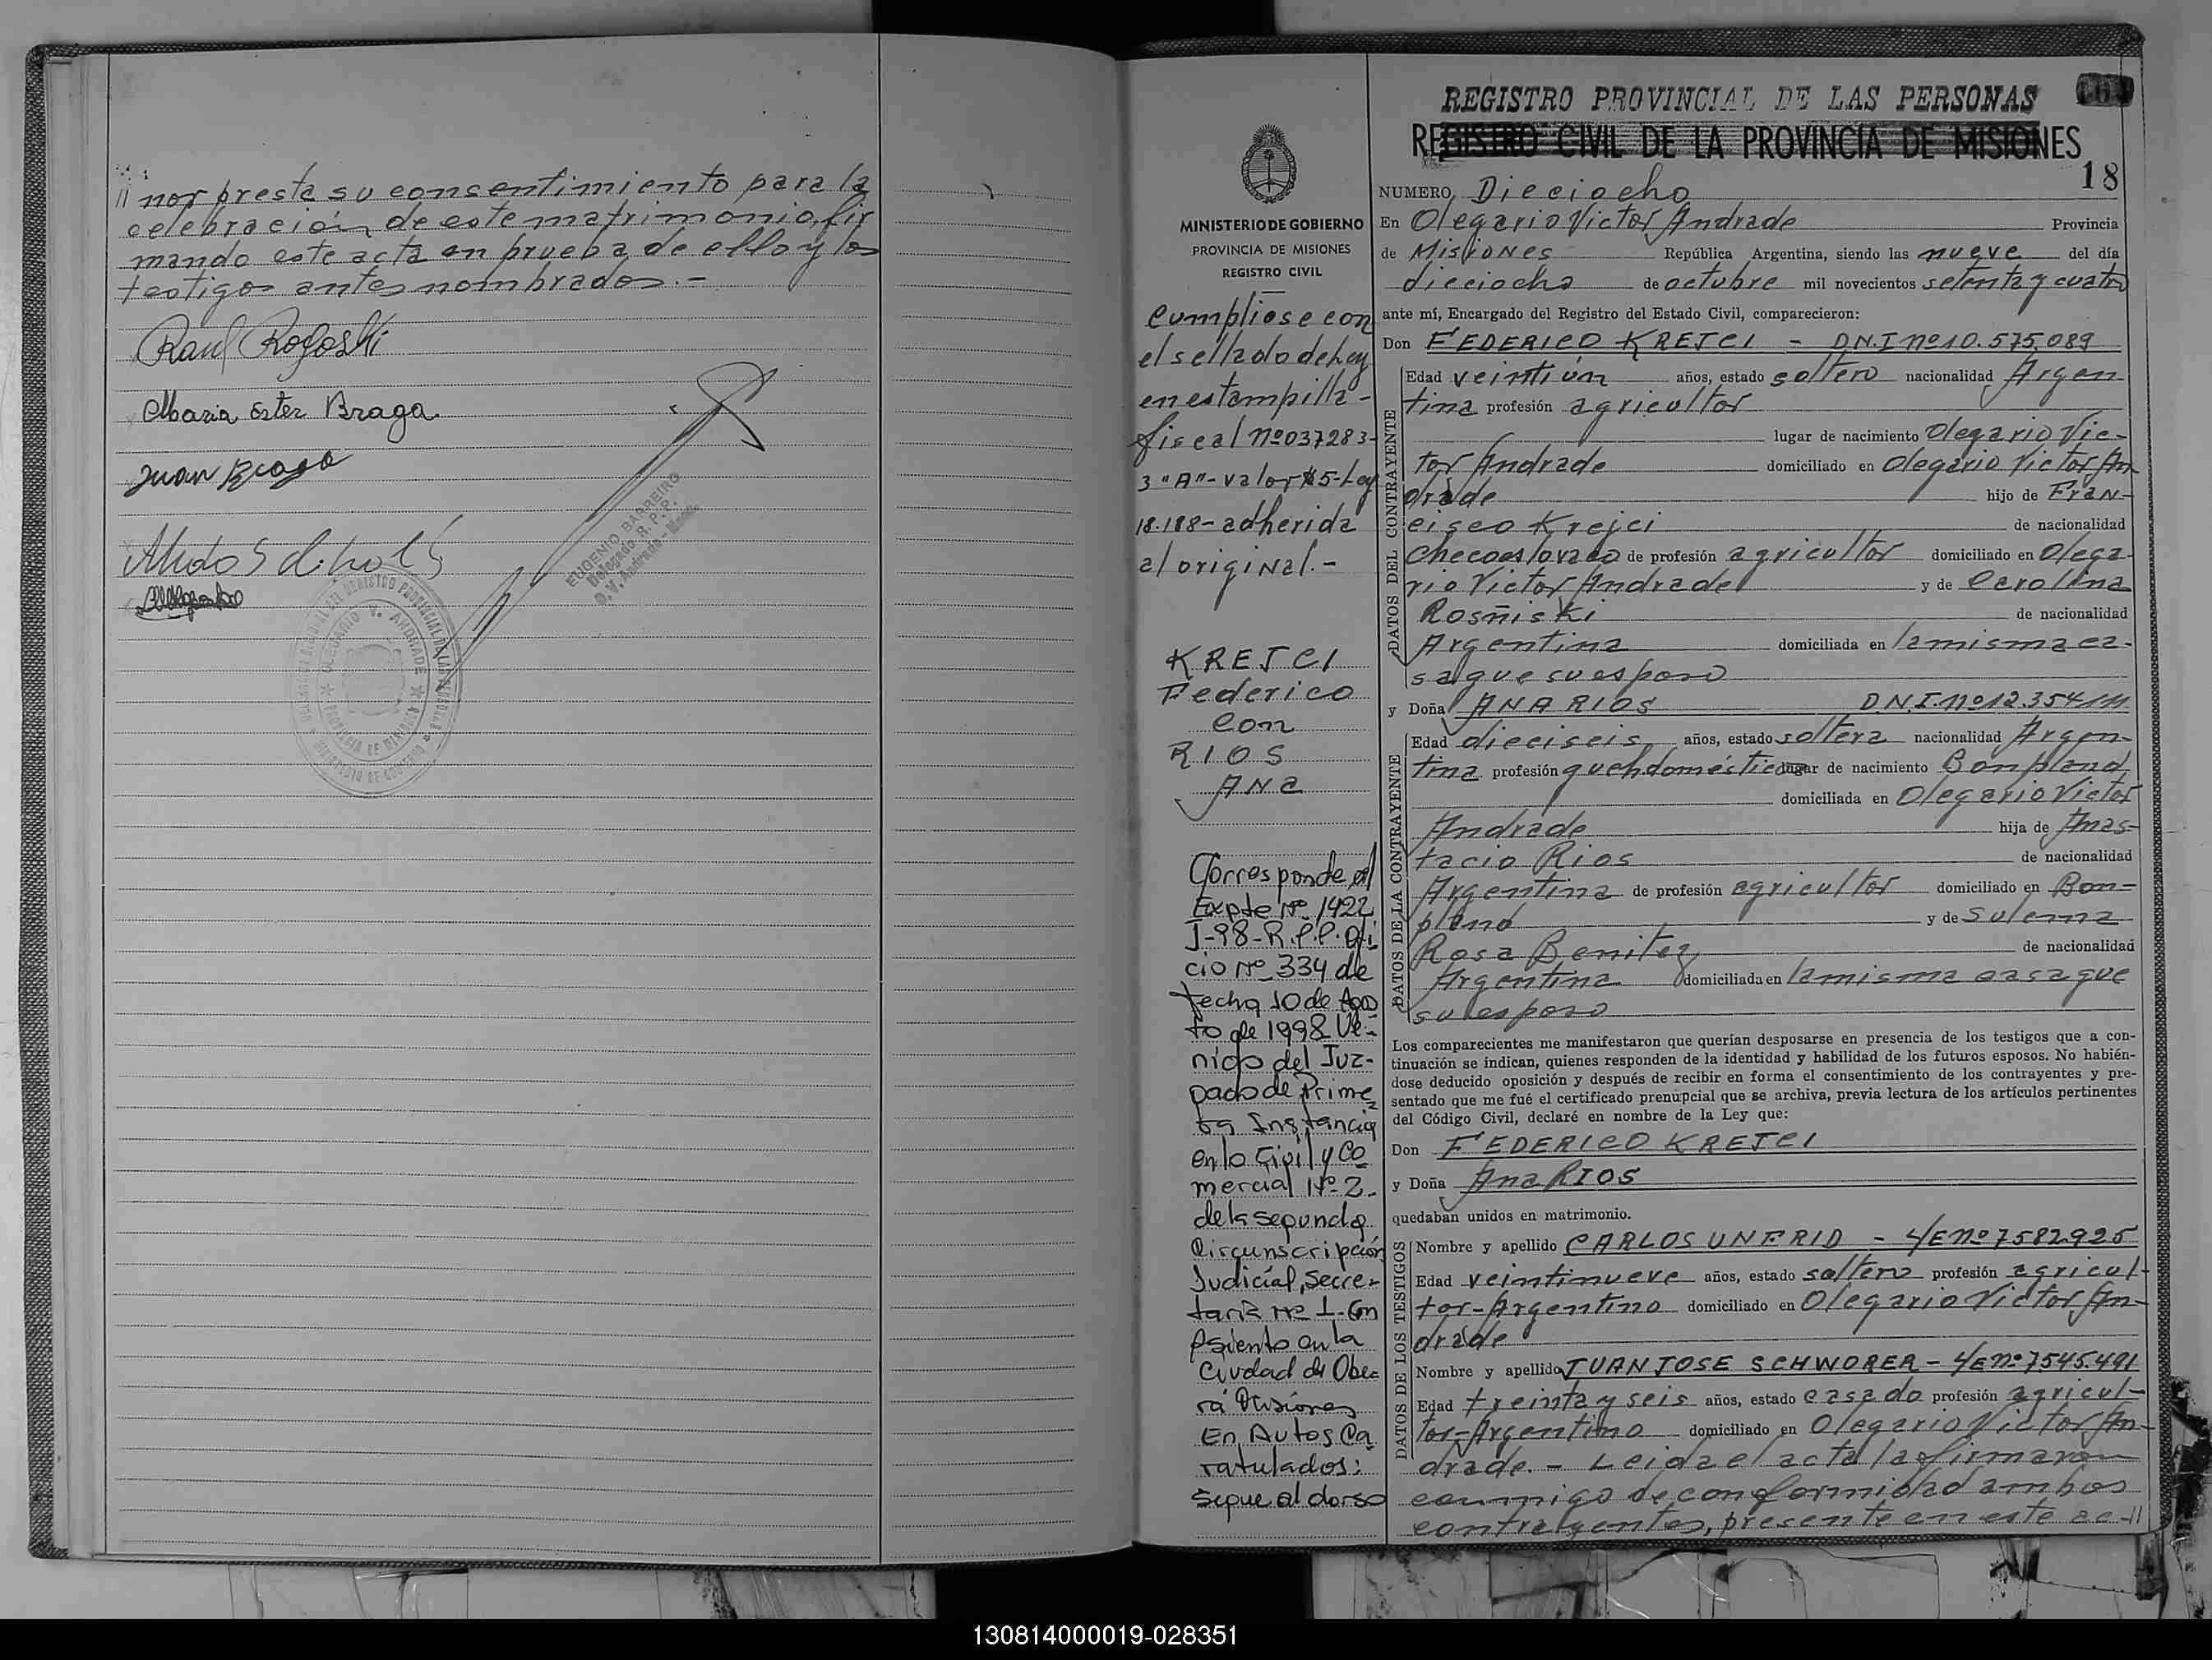 nor presta su consentimiento para la
celebración de este matrimonio, fir
mando este acta en prueba de ello y los
testigos antes nombrados.-
Raul Rogoski
Maria Ester Braga
Juan Braga
EUGENIO BARREIRO
Delegado R.P.P.
O.V. Andrade - Mnes.
OLEGARIO V. ANDRADE
PROVINCIA DE MISIONES
MINISTERIO DE GOBIERNO
MINISTERIO DE GOBIERNO
PROVINCIA DE MISIONES
REGISTRO CIVIL
Cumpliose con
el sellado de Ley
en estampilla-
fiscal Nº037283-
3 "A"- valor $5-Ley
18.188- adherida
al original.-
KREJCI
Federico
con
RIOS
Ana
Corresponde al
Expte Nº 1422
J-98-R.P.P. Ofi
cio Nº 334 de
fecha 10 de Agos
to de 1998 Ve-
nido del Juz-
gado de Prime
ra Instancia
en lo Civil y Co
mercial Nº 2-
de la segunda
Circunscripción
Judicial, Secre-
taria Nº 1- Con
Asiento en la
Ciudad de Obe-
rá Misiones
En Autos Ca
ratulados:
Sigue al dorso
REGISTRO PROVINCIAL DE LAS PERSONAS
REGISTRO CIVIL DE LA PROVINCIA DE MISIONES
18
NUMERO Dieciocho
En Olegario Victor Andrade Provincia
de Misiones República Argentina, siendo las nueve del día
dieciocho de octubre mil novecientos setenta y cuatro
ante mí, Encargado del Registro del Estado Civil, comparecieron:
Don FEDERICO KREJCI - D.N.I nº10.575.089
DATOS DEL CONTRAYENTE
Edad veintiún años, estado soltero nacionalidad Argen
tina profesión agricultor
lugar de nacimiento Olegario Vic-
tor Andrade domiciliado en Olegario Victor An
drade hijo de Fran-
cisco Krejci de nacionalidad
checoeslovaco de profesión agricultor domiciliado en Olega-
rio Victor Andrade y de Carolina
Rosñiski de nacionalidad
Argentina domiciliada en la misma ca-
sa que su esposo
y Doña ANA RIOS D.N.I. nº12.354.111
DATOS DE LA CONTRAYENTE
Edad dieciseis años, estado soltera nacionalidad Argen-
tina profesión queh.domésticos lugar de nacimiento Bonpland
domiciliada en Olegario Victor
Andrade hija de Anas-
tacio Rios de nacionalidad
Argentina de profesión agricultor domiciliado en Bon-
pland y de Sulema
Rosa Benitez de nacionalidad
Argentina domiciliada en la misma casa que
su esposo
Los comparecientes me manifestaron que querían desposarse en presencia de los testigos que a con-
tinuación se indican, quienes responden de la identidad y habilidad de los futuros esposos. No habién-
dose deducido oposición y después de recibir en forma el consentimiento de los contrayentes y pre-
sentado que me fué el certificado prenupcial que se archiva, previa lectura de los artículos pertinentes
del Código Civil, declaré en nombre de la Ley que:
Don FEDERICO KREJCI
y Doña Ana RIOS
quedaban unidos en matrimonio.
DATOS DE LOS TESTIGOS
Nombre y apellido CARLOS UNFRID - L/E nº7582925
Edad veintinueve años, estado soltero profesión agricul-
tor-Argentino domiciliado en Olegario Victor An-
drade
Nombre y apellido JUAN JOSE SCHWORER - L/E nº7545.491
Edad treinta y seis años, estado casado profesión agricul-
tor-Argentino domiciliado en Olegario Victor An-
drade.- Leida el acta la firmaron
conmigo de conformidad ambos
contrayentes, presente en este ac-//
130814000019-028351